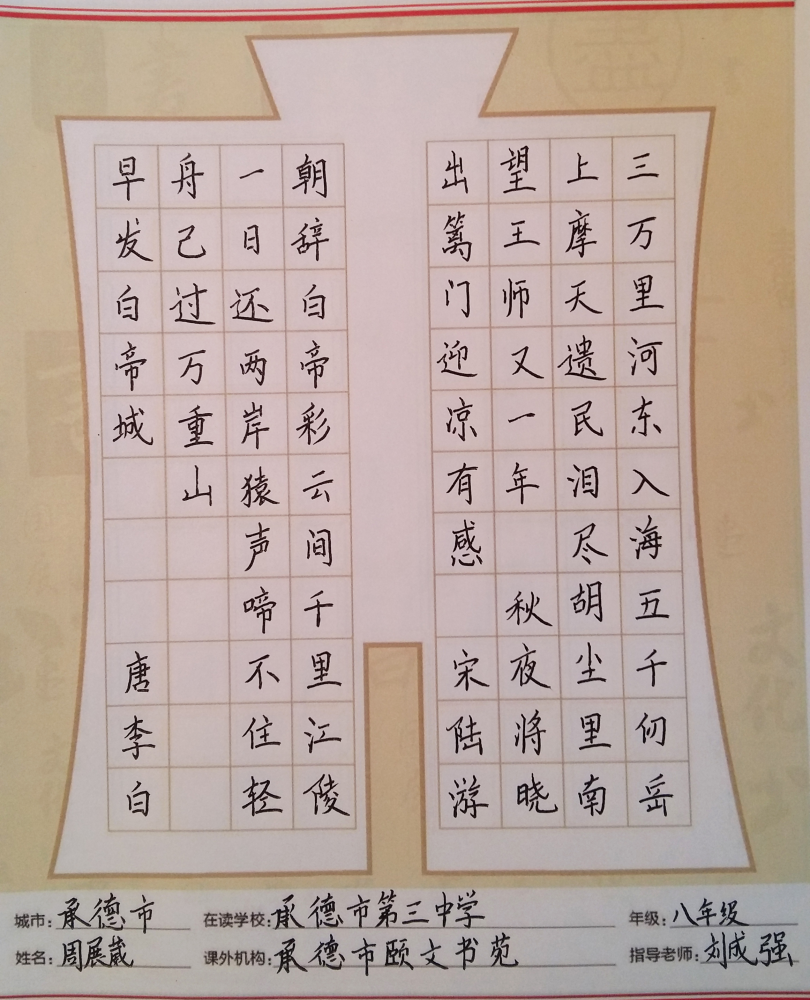 三万里河东入海五千仞岳
上摩天遗民泪尽胡尘里南
望王师又一年 秋夜将晓
出篱门迎凉有感 宋陆游
朝辞白帝彩云间千里江陵
一日还两岸猿声啼不住轻
舟已过万重山
早发白帝城 唐李白
城市：承德市 在读学校：承德市第三中学 年级：八年级
姓名：周展葳 课外机构：承德市颐文书苑 指导老师：刘成强